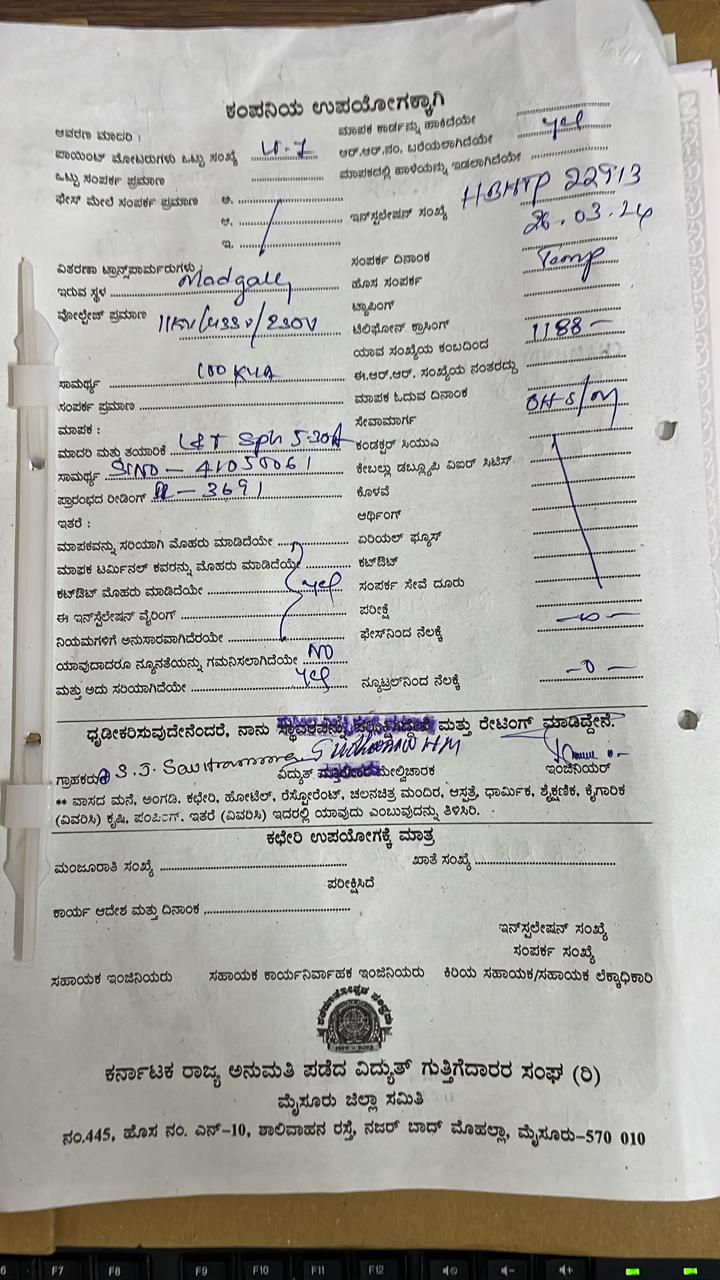 ಕಂಪನಿಯ ಉಪಯೋಗಕ್ಕಾಗಿ
ಆವರಣ ಮಾದರಿ : ಮಾಪಕ ಕಾರ್ಡನ್ನು ಹಾಕಿದೆಯೇ
ಪಾಯಿಂಟ್ ಮೋಟರುಗಳು ಒಟ್ಟು ಸಂಖ್ಯೆ ಆರ್.ಆರ್.ನಂ. ಬರೆಯಲಾಗಿದೆಯೇ yes
ಒಟ್ಟು ಸಂಪರ್ಕ ಪ್ರಮಾಣ ಮಾಪಕದಲ್ಲಿ ಹಾಳೆಯನ್ನು ಇಡಲಾಗಿದೆಯೇ
ಫೇಸ್ ಮೇಲೆ ಸಂಪರ್ಕ ಪ್ರಮಾಣ ಅ.
ಆ. ಇನ್‌ಸ್ಟಲೇಷನ್ ಸಂಖ್ಯೆ HBHTP 22913
ಇ. 26.03.24
ವಿತರಣಾ ಟ್ರಾನ್ಸ್‌ಫಾರ್ಮರುಗಳು : ಸಂಪರ್ಕ ದಿನಾಂಕ
ಇರುವ ಸ್ಥಳ Madgally ಹೊಸ ಸಂಪರ್ಕ Temp
ವೋಲ್ಟೇಜ್ ಪ್ರಮಾಣ 11KV/433V/230V ಟ್ಯಾಪಿಂಗ್
ಟೆಲಿಫೋನ್ ಕ್ರಾಸಿಂಗ್
ಯಾವ ಸಂಖ್ಯೆಯ ಕಂಬದಿಂದ 1188-
ಸಾಮರ್ಥ್ಯ 100 KVA ಈ.ಆರ್.ಆರ್. ಸಂಖ್ಯೆಯ ನಂತರದ್ದು
ಸಂಪರ್ಕ ಪ್ರಮಾಣ ಮಾಪಕ ಓದುವ ದಿನಾಂಕ
ಮಾಪಕ : ಸೇವಾಮಾರ್ಗ OH S/M
ಮಾದರಿ ಮತ್ತು ತಯಾರಿಕೆ L&T Sph 5-30A ಕಂಡಕ್ಟರ್ ಸಿಯುಎ
ಸಾಮರ್ಥ್ಯ SlNO - 41050061 ಕೇಬಲ್ಲು ಡಬ್ಲ್ಯೂಪಿ ವಿಐರ್ ಸಿಟಿಸ್.
ಪ್ರಾರಂಭದ ರೀಡಿಂಗ್ R - 3691 ಕೊಳವೆ
ಇತರೆ : ಆರ್ಥಿಂಗ್
ಮಾಪಕವನ್ನು ಸರಿಯಾಗಿ ಮೊಹರು ಮಾಡಿದೆಯೇ ಏರಿಯಲ್ ಫ್ಯೂಸ್
ಮಾಪಕ ಟರ್ಮಿನಲ್ ಕವರನ್ನು ಮೊಹರು ಮಾಡಿದೆಯೇ ಕಟ್‌ಔಟ್
ಕಟ್‌ಔಟ್ ಮೊಹರು ಮಾಡಿದೆಯೇ yes ಸಂಪರ್ಕ ಸೇವೆ ದೂರು
ಈ ಇನ್‌ಸ್ಟಲೇಷನ್ ವೈರಿಂಗ್ ಪರೀಕ್ಷೆ
ನಿಯಮಗಳಿಗೆ ಅನುಸಾರವಾಗಿದೆರಯೇ ಫೇಸ್‌ನಿಂದ ನೆಲಕ್ಕೆ
ಯಾವುದಾದರೂ ನ್ಯೂನತೆಯನ್ನು ಗಮನಿಸಲಾಗಿದೆಯೇ NO
ಮತ್ತು ಅದು ಸರಿಯಾಗಿದೆಯೇ yes ನ್ಯೂಟ್ರಲ್‌ನಿಂದ ನೆಲಕ್ಕೆ -0-
ಧೃಡೀಕರಿಸುವುದೇನೆಂದರೆ, ನಾನು ಮತ್ತು ರೇಟಿಂಗ್ ಮಾಡಿದ್ದೇನೆ.
ಗ್ರಾಹಕರು ವಿದ್ಯುತ್ ಮೇಲ್ವಿಚಾರಕ ಇಂಜಿನಿಯರ್
** ವಾಸದ ಮನೆ, ಅಂಗಡಿ. ಕಛೇರಿ, ಹೋಟೆಲ್, ರೆಸ್ಟೋರೆಂಟ್, ಚಲನಚಿತ್ರ ಮಂದಿರ, ಆಸ್ಪತ್ರೆ, ಧಾರ್ಮಿಕ, ಶೈಕ್ಷಣಿಕ, ಕೈಗಾರಿಕ
(ವಿವರಿಸಿ) ಕೃಷಿ, ಪಂಪಿಂಗ್. ಇತರೆ (ವಿವರಿಸಿ) ಇದರಲ್ಲಿ ಯಾವುದು ಎಂಬುವುದನ್ನು ತಿಳಿಸಿರಿ.
ಕಛೇರಿ ಉಪಯೋಗಕ್ಕೆ ಮಾತ್ರ
ಮಂಜೂರಾತಿ ಸಂಖ್ಯೆ ಖಾತೆ ಸಂಖ್ಯೆ
ಪರೀಕ್ಷಿಸಿದೆ
ಕಾರ್ಯ ಆದೇಶ ಮತ್ತು ದಿನಾಂಕ
ಇನ್‌ಸ್ಟಲೇಷನ್ ಸಂಖ್ಯೆ
ಸಂಪರ್ಕ ಸಂಖ್ಯೆ
ಸಹಾಯಕ ಇಂಜಿನಿಯರು ಸಹಾಯಕ ಕಾರ್ಯನಿರ್ವಾಹಕ ಇಂಜಿನಿಯರು ಕಿರಿಯ ಸಹಾಯಕ/ಸಹಾಯಕ ಲೆಕ್ಕಾಧಿಕಾರಿ
ಕರ್ನಾಟಕ ರಾಜ್ಯ ಅನುಮತಿ ಪಡೆದ ವಿದ್ಯುತ್ ಗುತ್ತಿಗೆದಾರರ ಸಂಘ (ರಿ)
ಮೈಸೂರು ಜಿಲ್ಲಾ ಸಮಿತಿ
ನಂ.445, ಹೊಸ ನಂ. ಎನ್-10, ಶಾಲಿವಾಹನ ರಸ್ತೆ, ನಜರ್ ಬಾದ್ ಮೊಹಲ್ಲಾ, ಮೈಸೂರು-570 010
F7 F8 F9 F10 F11 F12